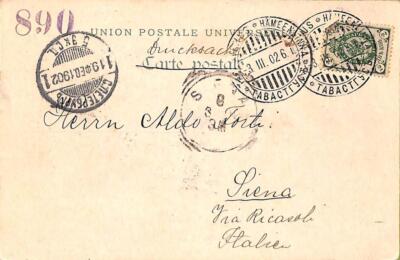 890
UNION POSTALE UNIVERSELLE
Drucksache
Carte postale
HÄMEENLINNA
3 III. 02 6.
TAVASTEHUS
HÄMEENLINNA
TAVASTEHUS
С.ПЕТЕРБУРГЪ
19 ФЕВ. 1902
1 1
8
Herrn Aldo Forti.
Siena
Via Ricasoli
Italien